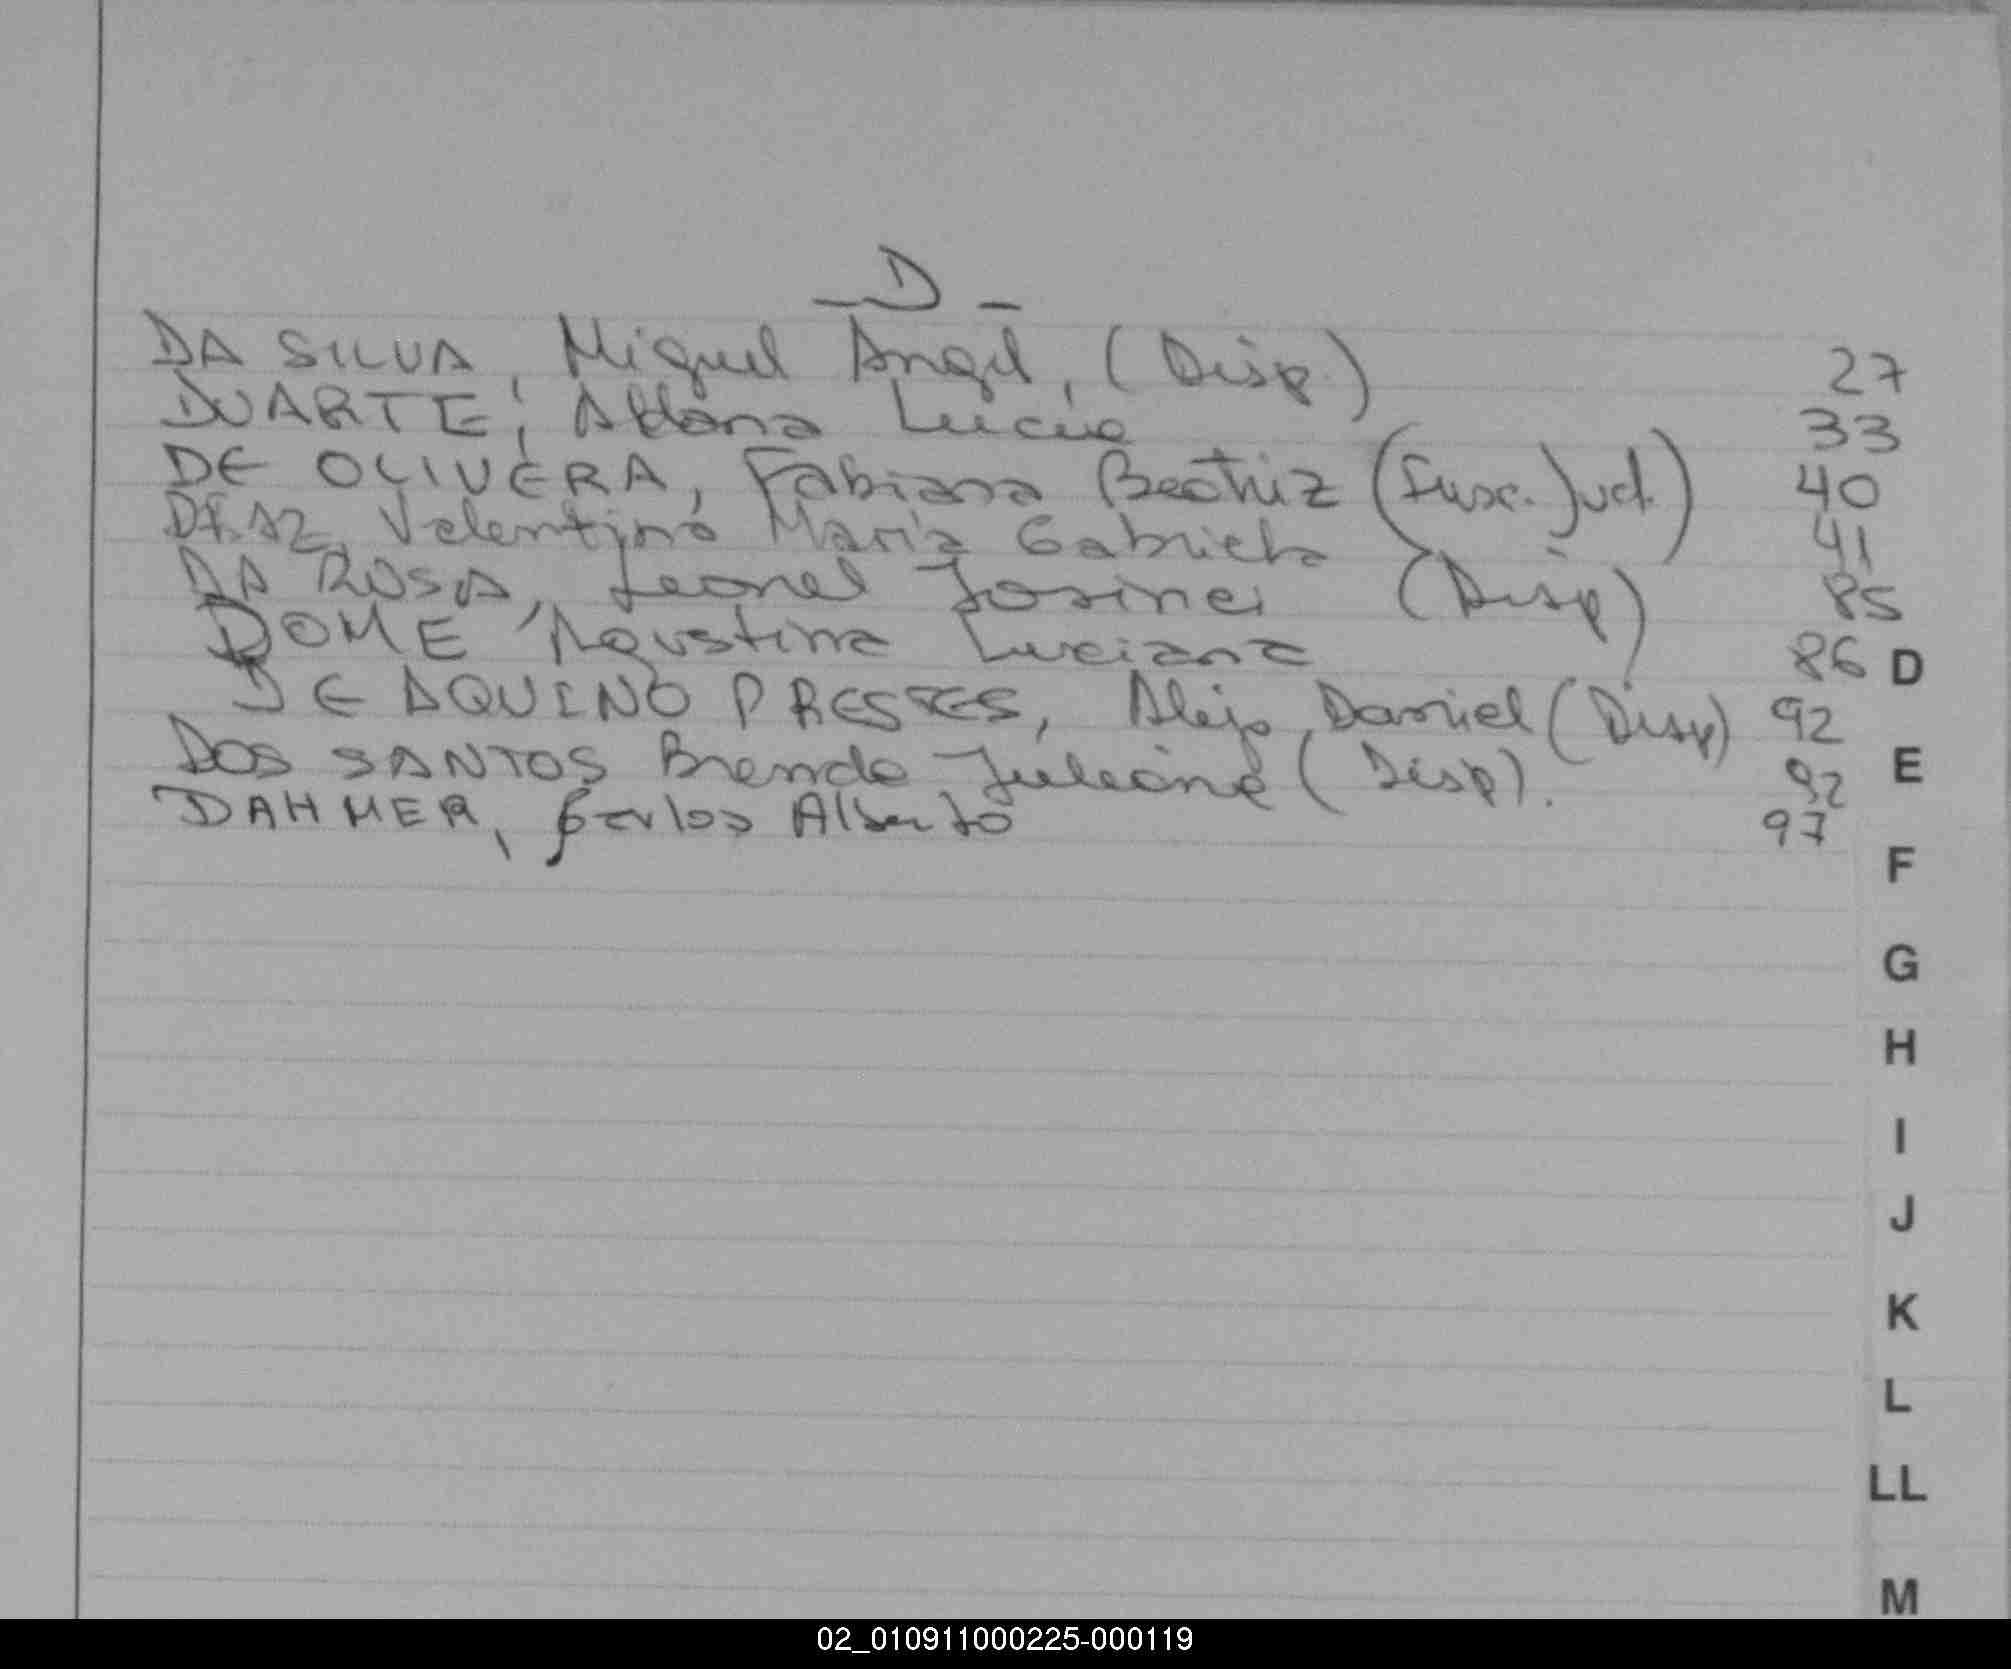 - D -
DA SILVA, Miguel Angel, (Disp.) 27
DUARTE, Aldana Lucia 33
DE OLIVERA, Fabiana Beatriz (Insc. Jud.) 40
DIAZ, Valentina Maria Gabriela 41
DA ROSA, Leonel Josinei (Disp) 85
DOME Agustina Luciana 86
DE AQUINO PRESTES, Alejo Daniel (Disp) 92
DOS SANTOS Brenda Juliana (Disp). 92
DAHMER, Carlos Alberto 97
D
E
F
G
H
I
J
K
L
LL
M
02_010911000225-000119